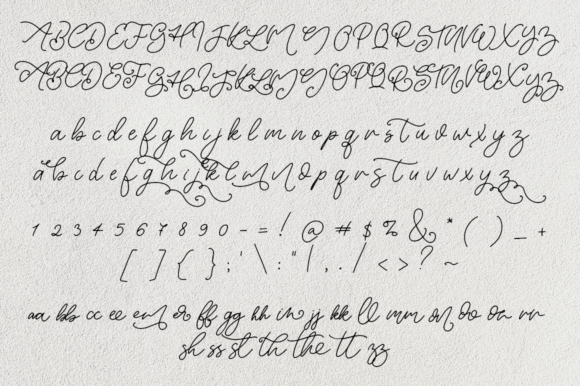 A B C D E F G H I J K L M N O P Q R S T U V W X Y Z
A B C D E F G H I J K L M N O P Q R S T U V W X Y Z
a b c d e f g h i j k l m n o p q r s t u v w x y z
a b c d e f g h i j k l m n o p q r s t u v w x y z
1 2 3 4 5 6 7 8 9 0 - = ! @ # $ % & * ( ) _ +
[ ] { } ; ' \ : " | , . / < > ? ~
aa bb cc ee en er ff gg hh in jj kk ll mm on oo or rr
sh ss st th the tt zz